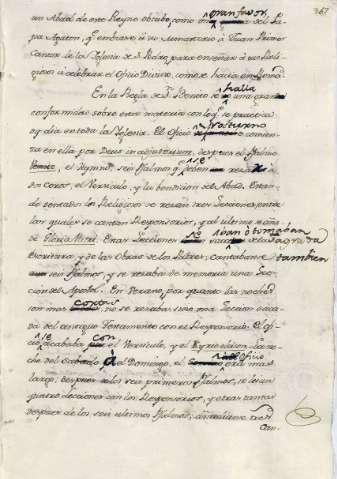 267
un Abad de este Reyno obtubo, como gran favor, del Pa-
pa Agaton, qe embiare à su Monasterio à Juan Primer
Cantor de la Iglesia de S. Pedro, para enseñar à sus Reli-
giosos à celebrar el Oficio Divino, como se hacia en Roma.
En la Regla de S. Benito se halla una gran
conformidad sobre esta materia con lo qe se practica
oy dia en toda la Iglesia. El Oficio Nocturno comien-
za en ella por Deus in adjutorium, despues el Psalmo
Venite, el Hymno, seis Psalmos qe se
dos Coros, el Versiculo, y la bendicion del Abad. Estan-
do sentados los Religiosos se rezan tres Lecciones entre
las quales se cantan Responsorios, y al ultimo se aña-
de Gloria Patri. Estas Lecciones se toman de la Sagrada
Escritura, y de las Obras de los Padres; Cantabanse tambien
seis Psalmos, y se rezaba de memoria una Lec-
cion del Apostol. En Verano, por quanto las noches
son mas cortas, no se rezaba sino una Leccion saca-
da del antiguo Testamento con el Responsorio. El ofi-
cio se acababa con el Versiculo, y el Kyrie eleison. La no-
che del Sabado à el Domingo, el Oficio era mas
largo; despues de los seis primeros Psalmos, se leian
quatro lecciones con los Responsorios, y otras tantas
despues de los seis ultimos Psalmos; decianse tres
Can-